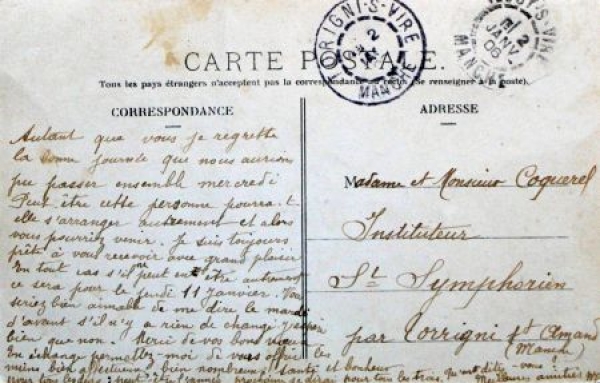 CARTE POSTALE.
Tous les pays étrangers n'acceptent pas la correspondance au recto. (Se renseigner à la poste).
TORIGNI-S-VIRE
2
MANCHE
S-VIRE
2
JANV
06
MANCHE
CORRESPONDANCE
Autant que vous je regrette
la bonne journée que nous aurions
pu passer ensemble mercredi
Peut être cette personne pourra-t-
elle s'arranger autrement et alors
vous pourriez venir. Je suis toujours
prête à vous recevoir avec grand plaisir
En tout cas s'il peut en être autrement
ce sera pour le jeudi 11 Janvier. Vous
seriez bien aimable de me dire le mardi
d'avant s'il n'y a rien de changé. J'espère
bien que non. Merci de vos bons vœux
En échange permettez-moi de vous offrir les
miens bien affectueux, bien nombreux, santé et bonheur
pour tous les trois. Qu'en dites-vous?
amitiés
ADRESSE
Madame et Monsieur Coquerel
Instituteur
St Symphorien
par Torrigni St Amand
(Manche)